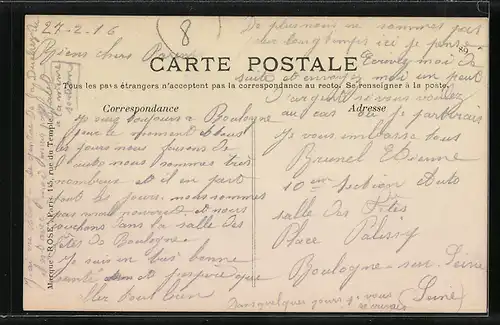 27-2-16
8
De plus nous ne sommes pas
pour longtemps ici je pense
Biens chers Parents
Ecrivez moi de
suite et envoyez moi un peut
CARTE POSTALE
Tous les pays étrangers n'acceptent pas la correspondance au recto. Se renseigner à la poste.
d'argent si vous voulez
Correspondance
Adresse
au cas où je partirais
Je suis toujours à Boulogne
pour le moment tous
Je vous embrasse tous
les jours nous faisons de
Brunel Etienne
l'auto nous sommes très
nombreux et il en part
10 eme section Auto
tout les jours. nous sommes
salle des Fêtes
pas mal nourris et nous
couchons dans la salle des
Place Palissy
fêtes de Boulogne
Je suis en très bonne
Boulogne-sur-Seine
santé et j'espère que
aller tout bien
(Seine)
Dans quelques jours je vous
Marque ROSE, Paris 115, rue du Temple
à la même